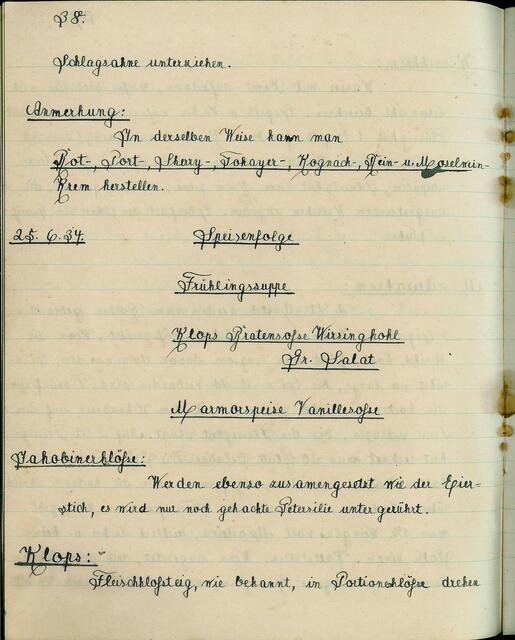 38.
Schlagsahne unterziehen.
Anmerkung:
In derselben Weise kann man
Rot-, Port-, Sherry-, Tokayer-, Kognack-, Rein- u. Moselwein-
Krem herstellen.
25. 6. 34. Speisenfolge
Frühlingssuppe
Klops Bratensoße Wirsingkohl
Gr. Salat
Marmorspeise Vanillesoße
Jakobinerklöße:
Werden ebenso zusamengesetzt wie der Eier-
stich, es wird nur noch gehackte Petersilie untergerührt.
Klops:
Fleischkloßteig, wie bekannt, in Portionsklöße drehen